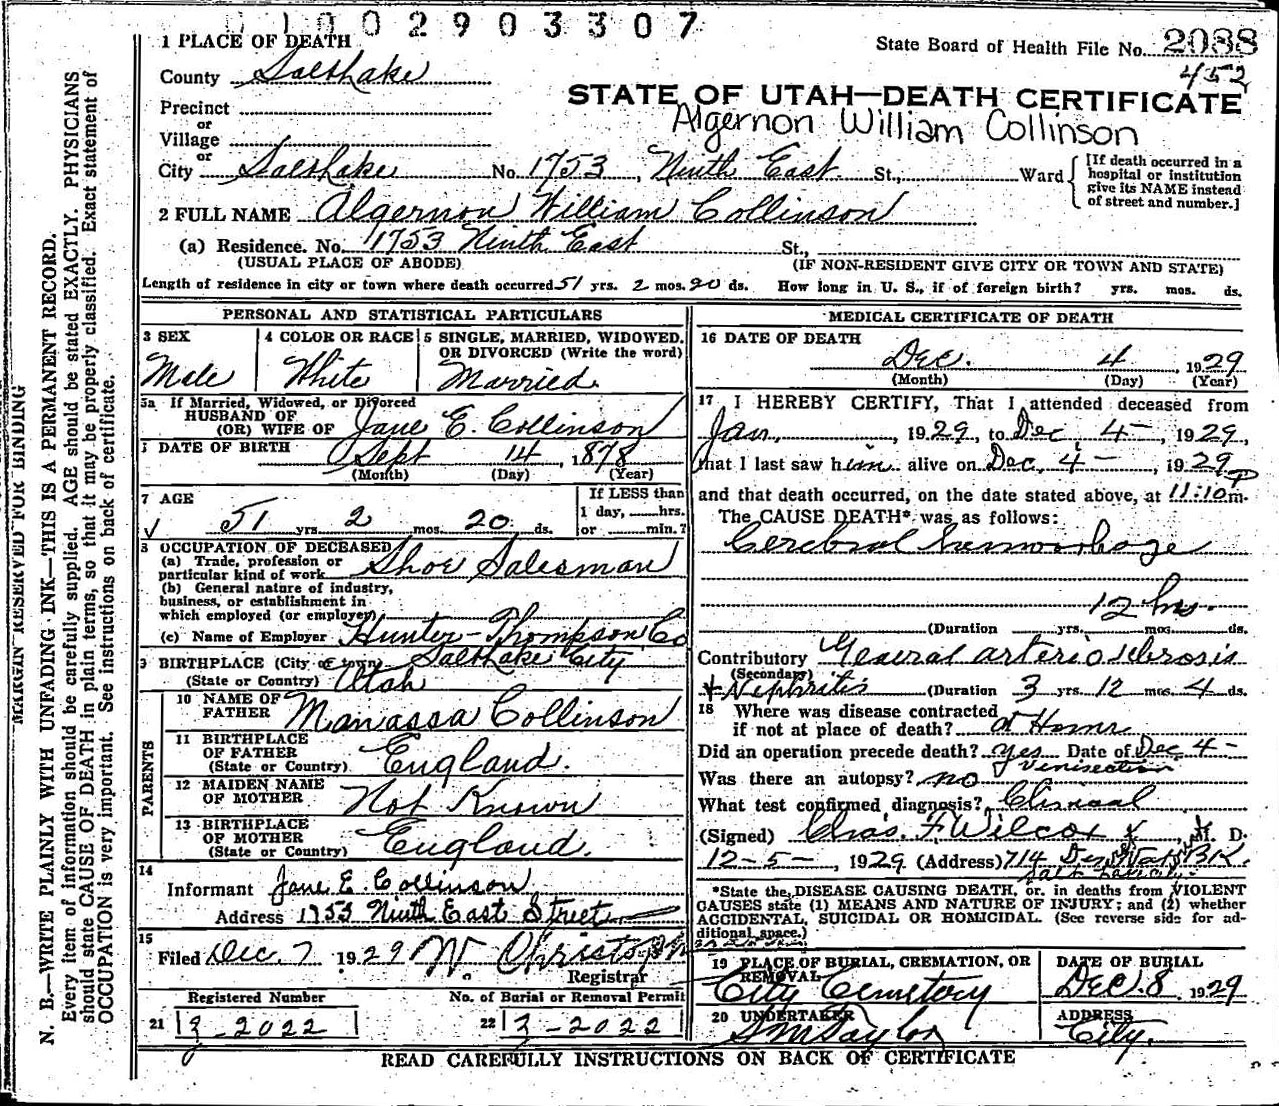 01002903307
1 PLACE OF DEATH
State Board of Health File No. 2088
452
County Salt Lake
STATE OF UTAH—DEATH CERTIFICATE
Algernon William Collinson
Precinct
or
Village
or
City Salt Lake No. 1753, Ninth East St., Ward
[If death occurred in a hospital or institution give its NAME instead of street and number.]
2 FULL NAME Algernon William Collinson
(a) Residence. No. 1753 Ninth East St.,
(USUAL PLACE OF ABODE) (IF NON-RESIDENT GIVE CITY OR TOWN AND STATE)
Length of residence in city or town where death occurred 51 yrs. 2 mos. 20 ds. How long in U. S., if of foreign birth? yrs. mos. ds.
PERSONAL AND STATISTICAL PARTICULARS
3 SEX
Male
4 COLOR OR RACE
White
5 SINGLE, MARRIED, WIDOWED, OR DIVORCED (Write the word)
Married
5a If Married, Widowed, or Divorced
HUSBAND OF
(OR) WIFE OF Jane E. Collinson
DATE OF BIRTH Sept 14, 1878
(Month) (Day) (Year)
7 AGE
51 yrs 2 mos. 20 ds.
If LESS than 1 day, hrs. or min.?
8 OCCUPATION OF DECEASED
(a) Trade, profession or particular kind of work Shoe Salesman
(b) General nature of industry, business, or establishment in which employed (or employer)
(c) Name of Employer Hunter-Thompson Co
9 BIRTHPLACE (City or town) Salt Lake City
(State or Country) Utah
PARENTS
10 NAME OF FATHER Manassa Collinson
11 BIRTHPLACE OF FATHER (State or Country) England.
12 MAIDEN NAME OF MOTHER Not Known
13 BIRTHPLACE OF MOTHER (State or Country) England.
14
Informant Jane E Collinson
Address 1753 Ninth East Street
15
Filed Dec. 7 1929
Registrar
Registered Number No. of Burial or Removal Permit
21 3-2022 22 3-2022
MEDICAL CERTIFICATE OF DEATH
16 DATE OF DEATH
Dec. 4, 1929
(Month) (Day) (Year)
17 I HEREBY CERTIFY, That I attended deceased from
Jan, 1929, to Dec 4-, 1929,
that I last saw him alive on Dec, 4-, 1929
and that death occurred, on the date stated above, at 11:10 P m.
The CAUSE DEATH* was as follows:
Cerebral hemorrhage
12 hrs.
(Duration yrs. mos. ds.
Contributory General arteriosclerosis
(Secondary)
+ Nephritis (Duration 3 yrs. 12 mos. 4 ds.
18 Where was disease contracted
if not at place of death? at Home
Did an operation precede death? yes Date of Dec 4-
Venisection
Was there an autopsy? no
What test confirmed diagnosis? Clinical
(Signed) Chas. F Wilcox, M. D.
12-5-, 1929 (Address) 714 Des Nat Bk.
Salt Lake City
*State the DISEASE CAUSING DEATH, or. in deaths from VIOLENT
CAUSES state (1) MEANS AND NATURE OF INJURY; and (2) whether
ACCIDENTAL, SUICIDAL OR HOMICIDAL. (See reverse side for additional space.)
19 PLACE OF BURIAL, CREMATION, OR REMOVAL
City Cemetery
DATE OF BURIAL
Dec. 8, 1929
20 UNDERTAKER
S M Taylor
ADDRESS
City.
READ CAREFULLY INSTRUCTIONS ON BACK OF CERTIFICATE
MARGIN RESERVED FOR BINDING
N. B.—WRITE PLAINLY WITH UNFADING INK—THIS IS A PERMANENT RECORD.
Every item of information should be carefully supplied. AGE should be stated EXACTLY. PHYSICIANS
should state CAUSE OF DEATH in plain terms, so that it may be properly classified. Exact statement of
OCCUPATION is very important. See instructions on back of certificate.